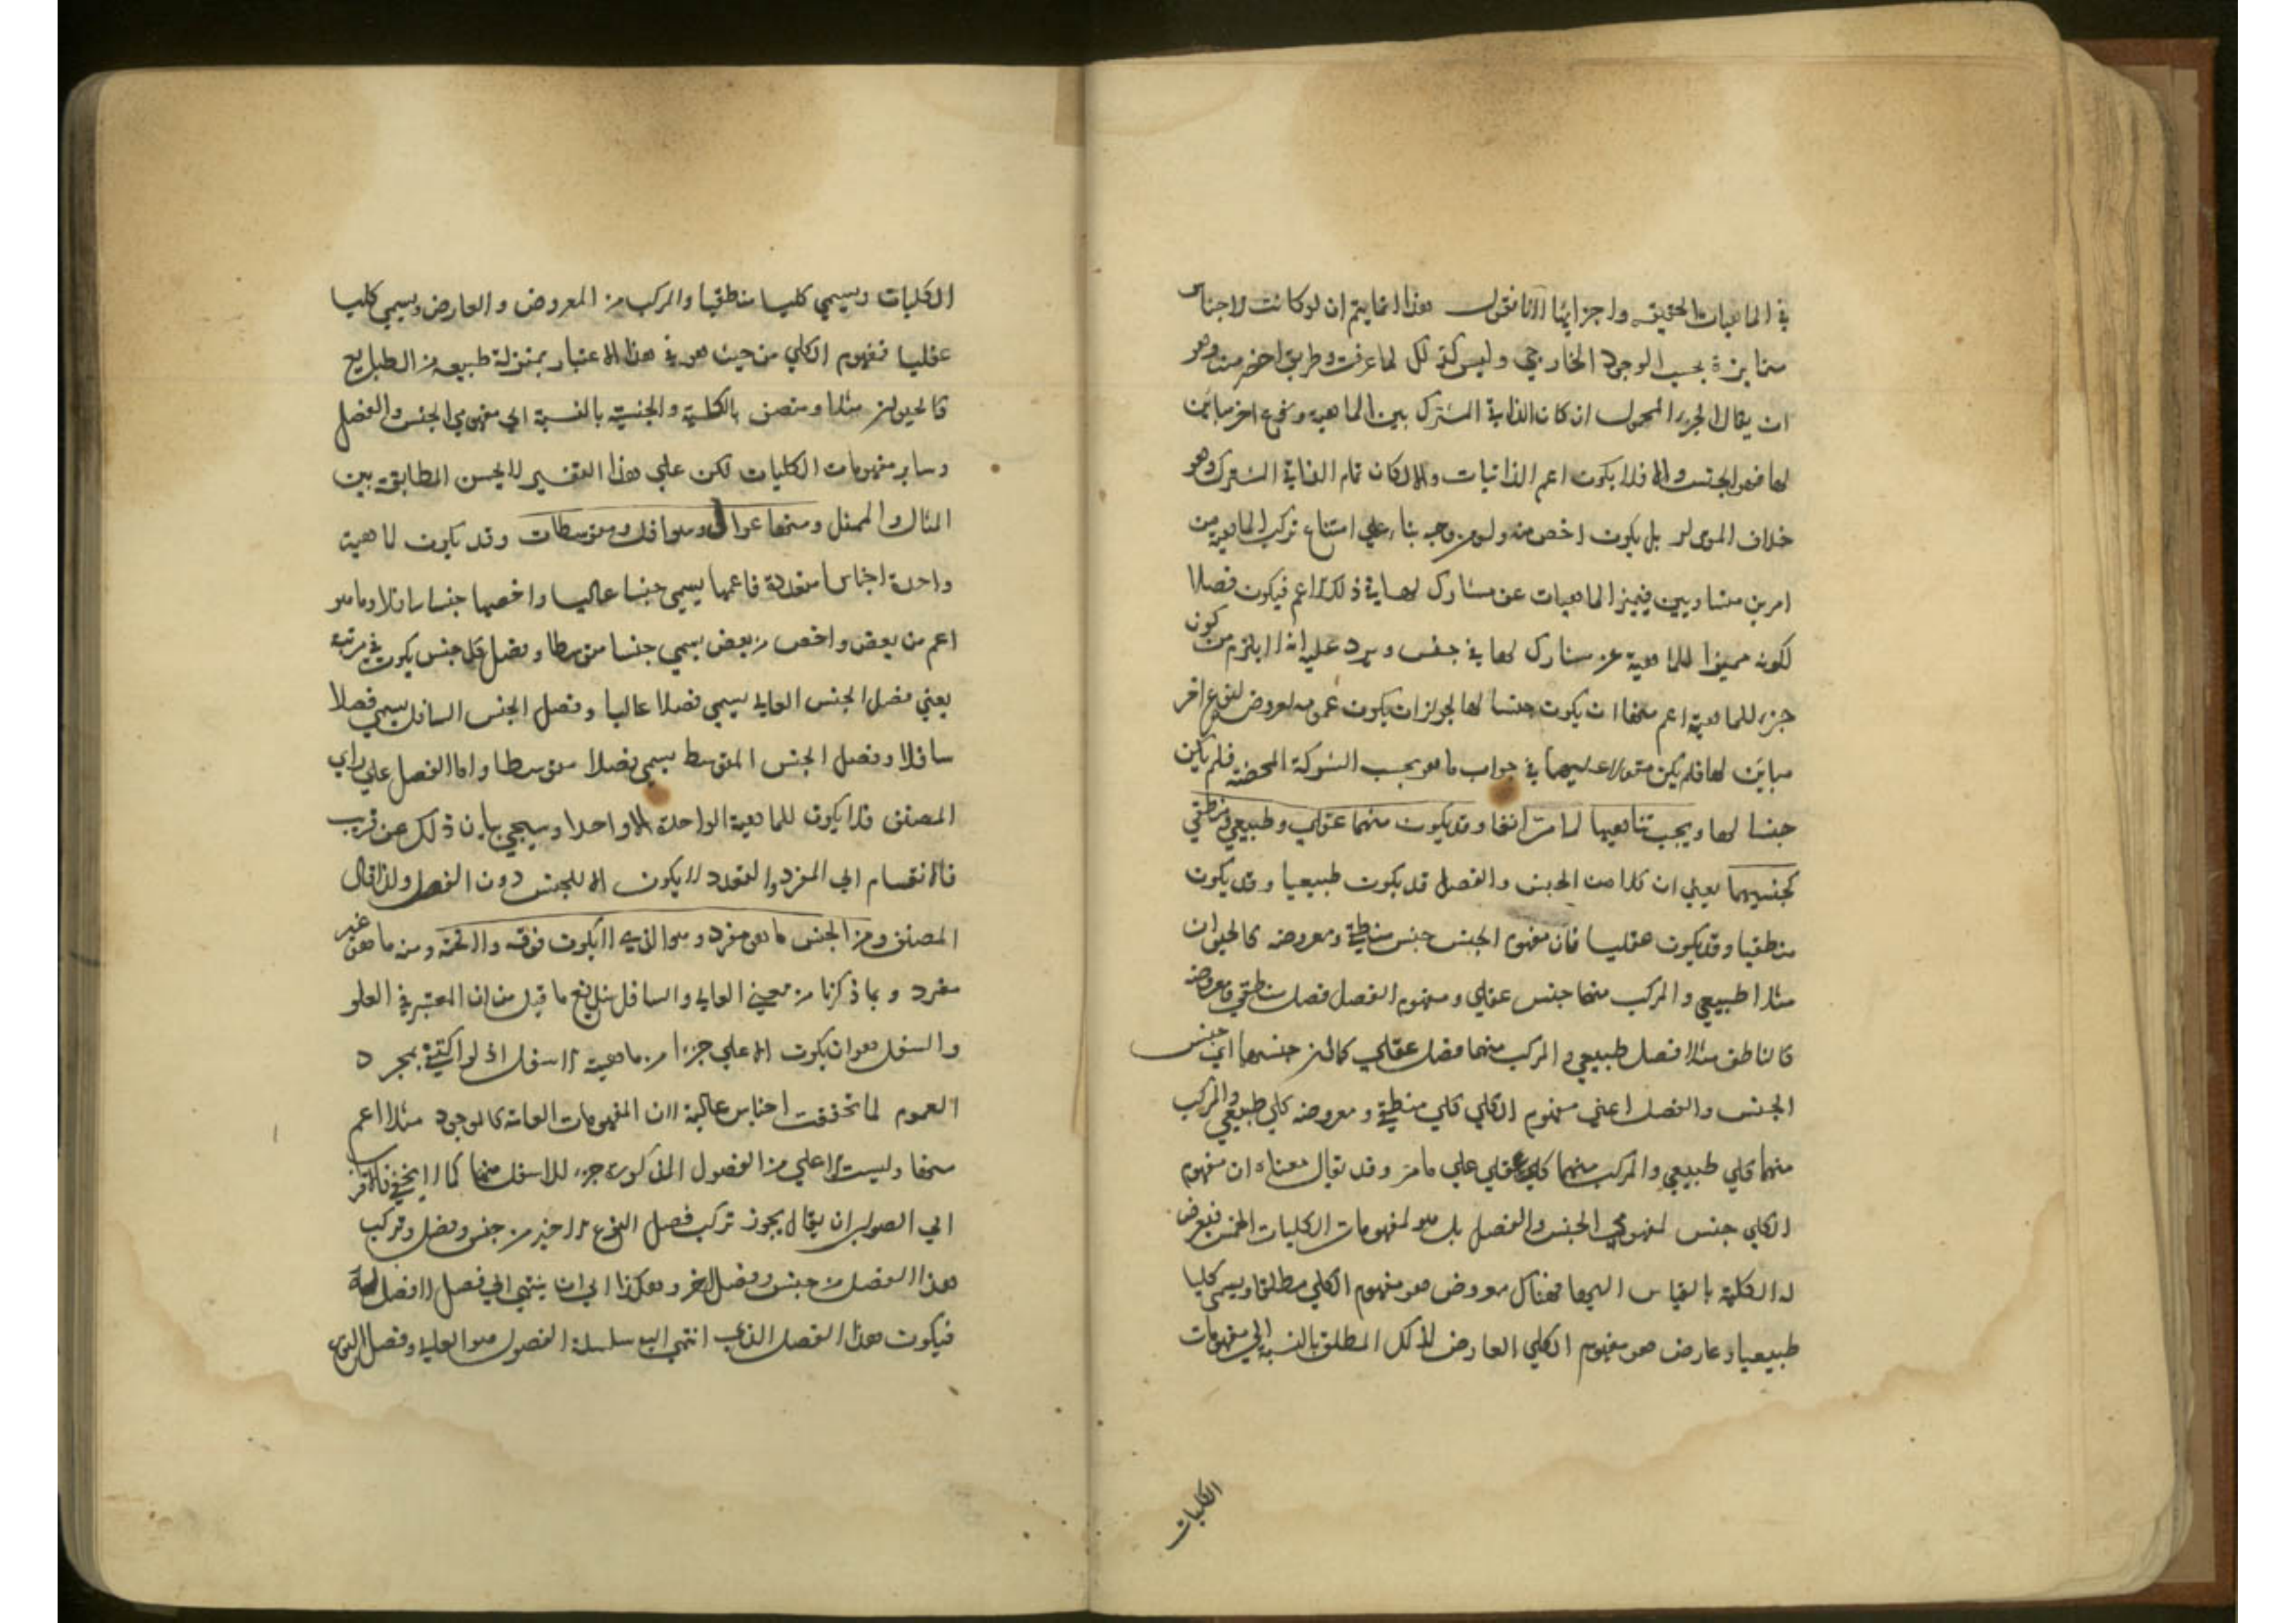 في الماهيات الحقيقية واجزائها لانا نقول هذا انما يتم ان لو كانت الاجناس
متمايزة بحسب الوجود الخارجي وليس كذلك لما عرفت وطريق اخصر منه وهو
ان يقال الجزء المحمول ان كان الذاتي المشترك بين الماهية ونوع اخر مباين
لها فهو الجنس والا فلا يكون اعم الذاتيات والا لكان تمام الذاتي المشترك وهو
خلاف المقدر بل يكون اخص منه ولو من وجه بناء علي امتناع تركب الماهية من
امرين متساويين فيميز الماهيات عن مشارك لها في ذلك الاعم فيكون فصلا
لكونه مميزا للماهية عن مشارك لها في جنس ويرد عليه انه لا يلزم من كون
جزء للماهية اعم منها ان يكون جنسا لها لجواز ان يكون عمومه لعروض لنوع اخر
مباين لها فلم يكن مقولا عليهما في جواب ما هو بحسب الشركة المحضة فلم يكن
جنسا لها ويجب تناهيها لما مر انفا وقد يكون منهما عقلي وطبيعي ومنطقي
كجنسيهما يعني ان كلا من الجنس والفصل قد يكون طبيعيا وقد يكون
منطقيا وقد يكون عقليا فان مفهوم الجنس جنس منطقي ومعروضه كالحيوان
مثلا طبيعي والمركب منهما جنس عقلي ومفهوم الفصل فصل منطقي ومعروضه
كالناطق مثلا فصل طبيعي والمركب منهما فصل عقلي كما ان جنسهما اي جنس
الجنس والفصل اعني مفهوم الكلي كلي منطقي ومعروضه كلي طبيعي والمركب
منهما كلي طبيعي والمركب منهما كلي عقلي علي ما مر وقد يقال معناه ان مفهوم
الكلي جنس لمفهومي الجنس والفصل بل هو لمفهومات الكليات الخمس فيعرض
له الكلية بالقياس اليها فهناك معروض هو مفهوم الكلي مطلقا ويسمي كليا
طبيعيا وعارض هو مفهوم الكلي العارض لذلك المطلق بالنسبة الي مفهومات
الكليات
الكليات ويسمي كليا منطقيا والمركب من المعروض والعارض ويسمي كليا
عقليا فمفهوم الكلي من حيث هو في هذا الاعتبار بمنزلة طبيعة من الطبايع
كالحيوان مثلا ومتصف بالكلية والجنسية بالنسبة الي مفهومي الجنس والفصل
وساير مفهومات الكليات لكن علي هذا التفسير لا يحسن المطابقة بين
المثال والممثل ومنها عوالي وسوافل ومتوسطات وقد يكون لماهية
واحدة اجناس متعددة فاعمها يسمي جنسا عاليا واخصها جنسا سافلا وما هو
اعم من بعض واخص من بعض يسمي جنسا متوسطا وفصل كل جنس يكون في مرتبته
يعني فصل الجنس العالي يسمي فصلا عاليا وفصل الجنس السافل يسمي فصلا
سافلا وفصل الجنس المتوسط يسمي فصلا متوسطا واما الفصل علي راي
المصنف فلا يكون للماهية الواحدة الا واحدا وسيجي بيان ذلك عن قريب
فالانقسام الي المفرد والمتعدد لا يكون الا للجنس دون الفصل ولذا قال
المصنف ومن الجنس ما هو مفرد وهو الذي لا يكون فوقه ولا تحته ومنه ما هو غير
مفرد وبما ذكرنا من معني العالي والسافل يندفع ما قيل من ان المعتبر في العلو
والسفل هو ان يكون الاعلي جزءا من ماهية الاسفل اذ لو اكتفي بمجرد
العموم لما تحققت اجناس عالية لان المفهومات العامة كالوجود مثلا اعم
منها وليست الاعلي من الفصول المذكورة جزء للاسفل منها كما لا يخفي فالاقرب
الي الصواب ان يقال يجوز تركب فصل النوع الاخير من جنس وفصل وتركب
هذا الفصل من جنس وفصل اخر وهكذا الي ان ينتهي الي فصل لا فصل له
فيكون هذا الفصل الذي انتهي اليه سلسلة الفصول هو العالي وفصل النوع